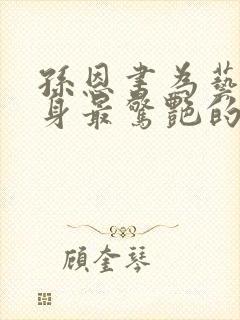 孫恩書為藝
身最驚艷的
顧奎琴